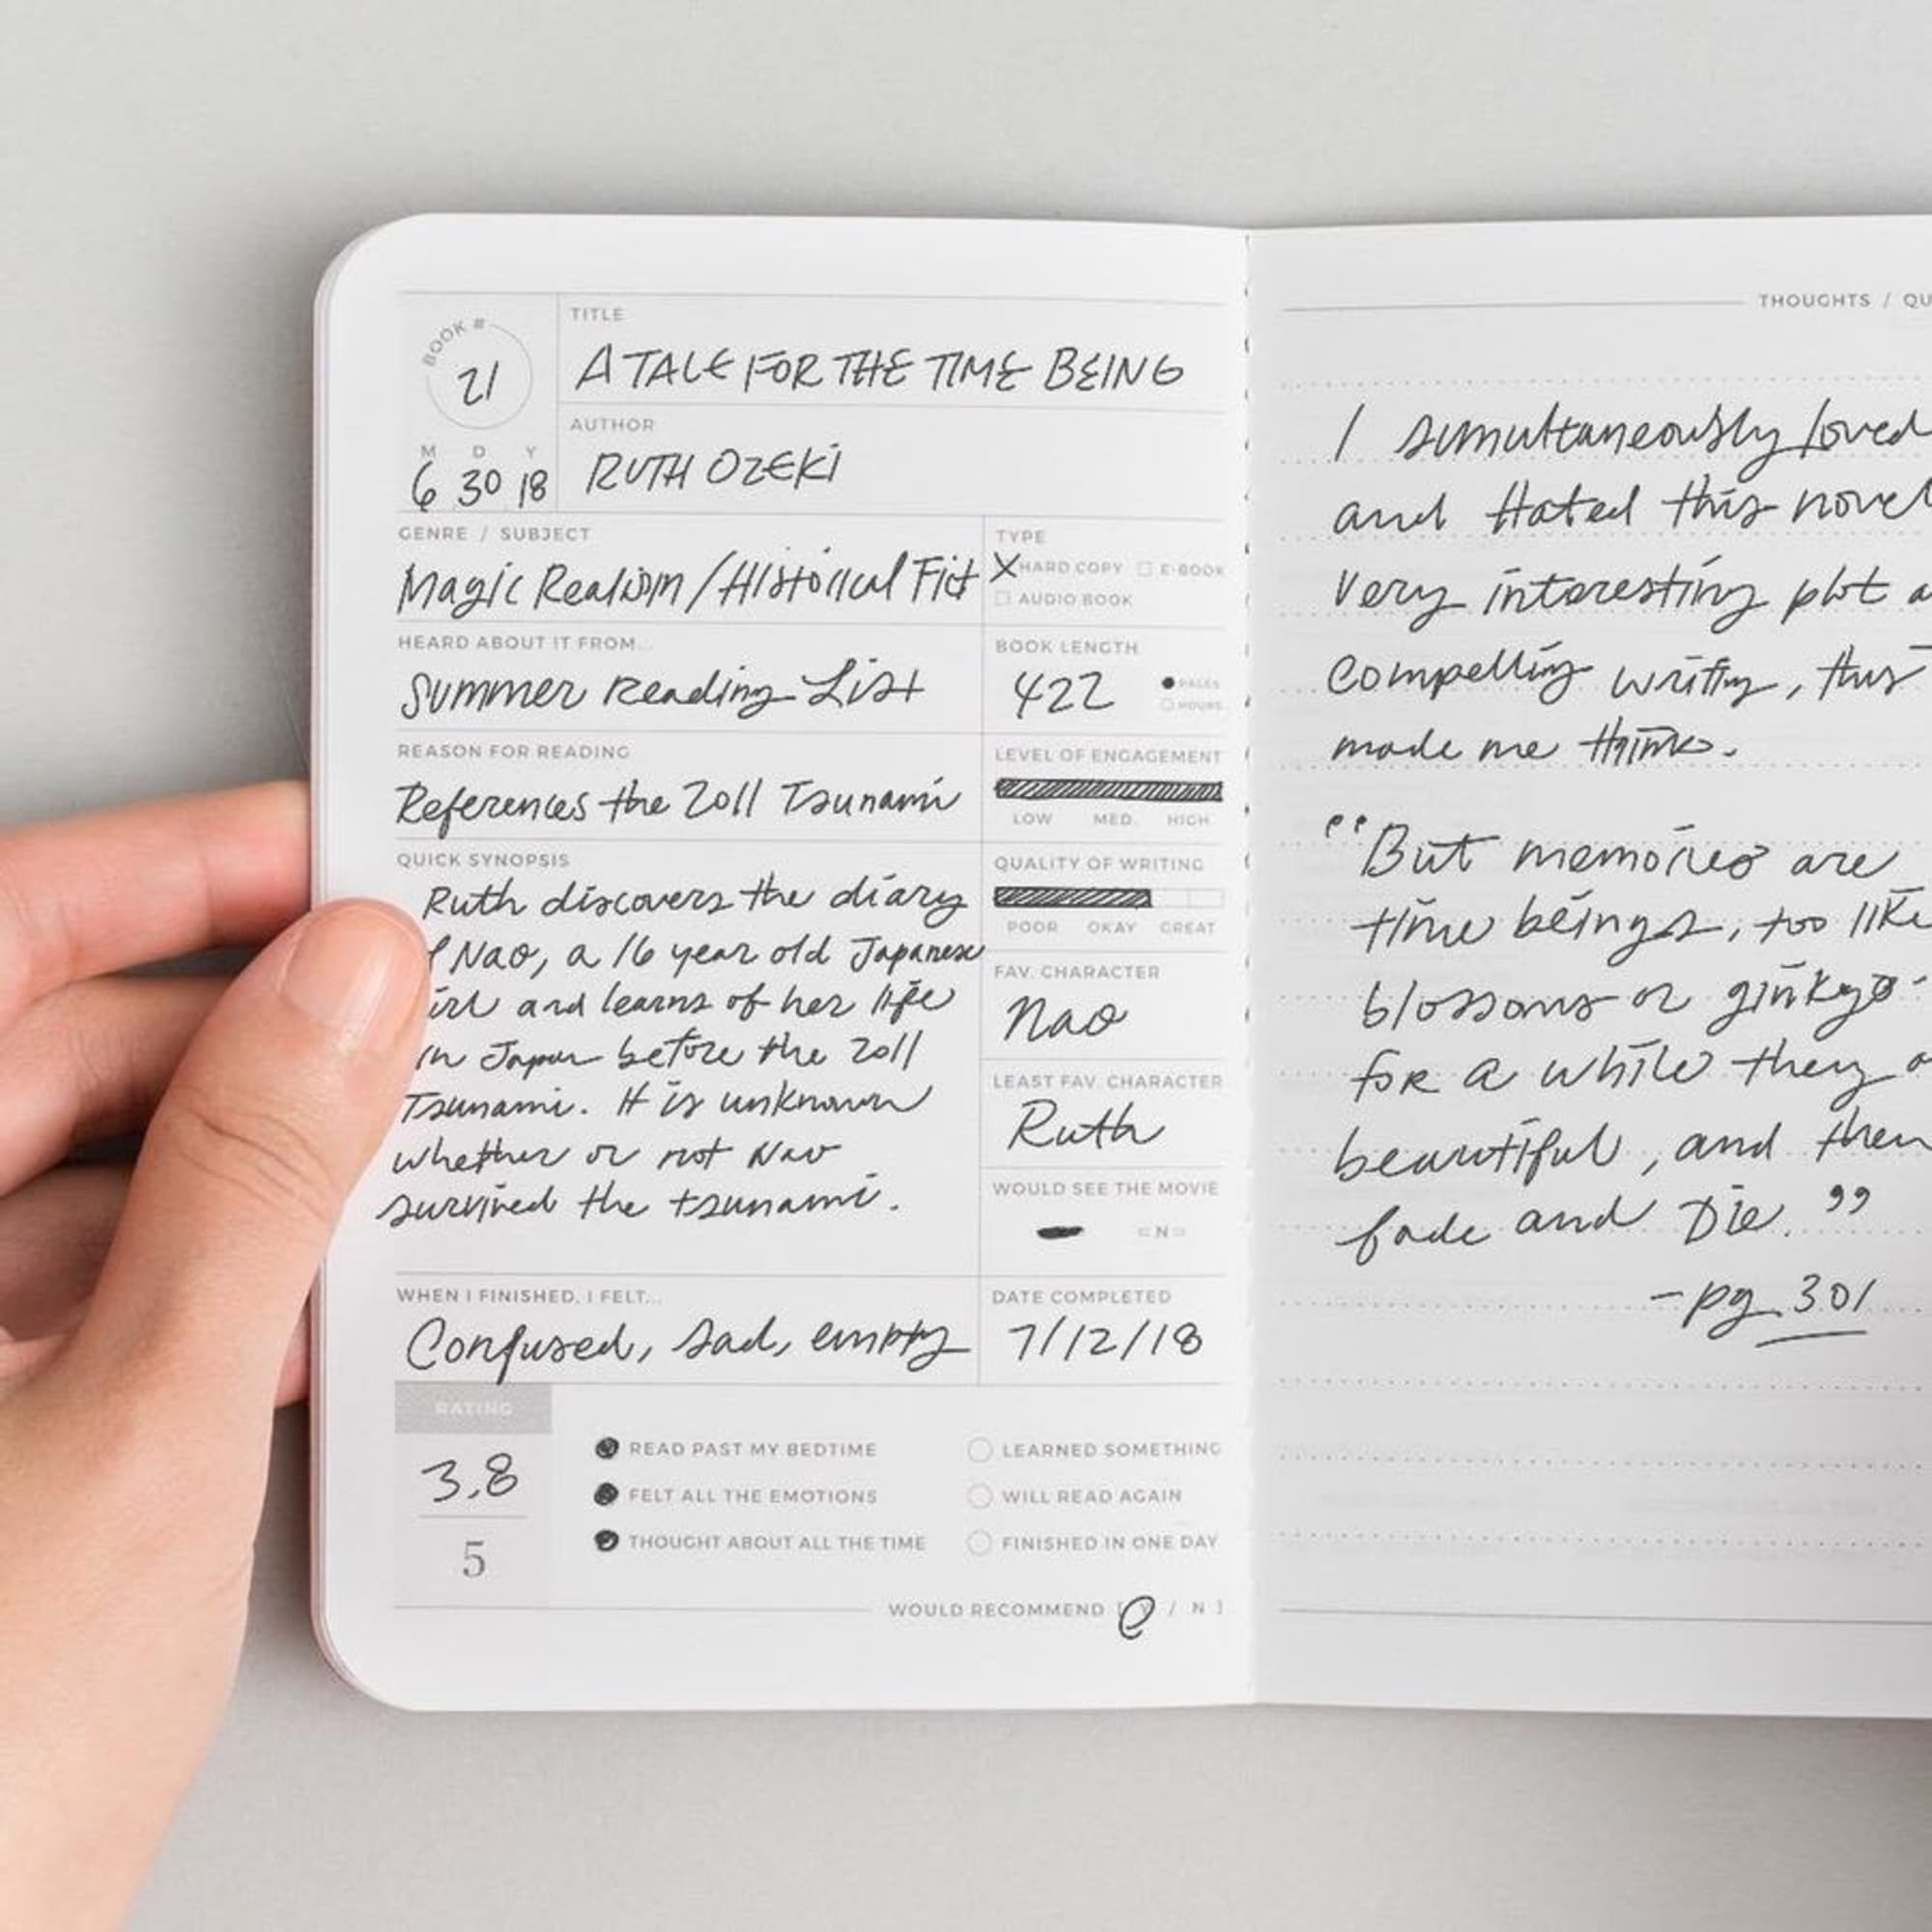 BOOK #
21
M D Y
6 30 18
TITLE
A TALE FOR THE TIME BEING
AUTHOR
RUTH OZEKI
GENRE / SUBJECT
Magic Realism / Historical Fict
TYPE
HARD COPY E-BOOK
AUDIO BOOK
HEARD ABOUT IT FROM...
Summer Reading List
BOOK LENGTH
422
PAGES
HOURS
REASON FOR READING
References the 2011 Tsunami
LEVEL OF ENGAGEMENT
LOW MED. HIGH
QUICK SYNOPSIS
Ruth discovers the diary
Nao, a 16 year old Japanese
and learns of her life
in Japan before the 2011
Tsunami. It is unknown
whether or not Nao
survived the tsunami.
QUALITY OF WRITING
POOR OKAY GREAT
FAV. CHARACTER
Nao
LEAST FAV. CHARACTER
Ruth
WOULD SEE THE MOVIE
N
WHEN I FINISHED, I FELT...
Confused, sad, empty
DATE COMPLETED
7/12/18
RATING
3.8
5
READ PAST MY BEDTIME
FELT ALL THE EMOTIONS
THOUGHT ABOUT ALL THE TIME
LEARNED SOMETHING
WILL READ AGAIN
FINISHED IN ONE DAY
WOULD RECOMMEND [ Y / N ]
THOUGHTS / QU
I simultaneously loved
and Hated this novel
Very interesting plot a
compelling writing, this
made me think.
"But memories are
time beings, too like
blossoms or ginkgo
for a while they a
beautiful, and then
fade and Die."
- pg 301